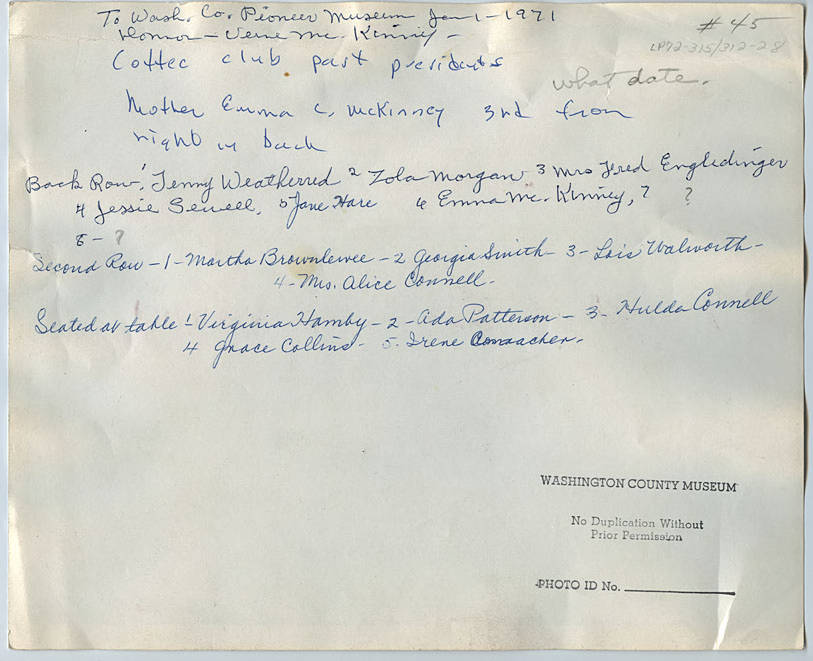 To Wash. Co. Pioneer Museum Jan 1-1971
#45
Donor - Verne Mc. Kinney -
LP72-315/312-28
Coffee club past presidents
what date.
Mother Emma C. McKinney 3rd from
right in back
Back Row! Jenny Weatherred 2 Zola Morgan 3 Mrs Fred Engledinger
4 Jessie Sewell, 5 Jane Hare 6 Emma Mc. Kinney, 7 ?
8 - ?
Second Row - 1 - Martha Brownlewee - 2 Georgia Smith - 3 - Lois Walworth -
4 - Mrs. Alice Connell.
Seated at table 1 - Virginia Hamby - 2 - Ada Patterson - 3 - Hulda Connell
4 Grace Collins - 5. Irene
WASHINGTON COUNTY MUSEUM
No Duplication Without
Prior Permission
PHOTO ID No.